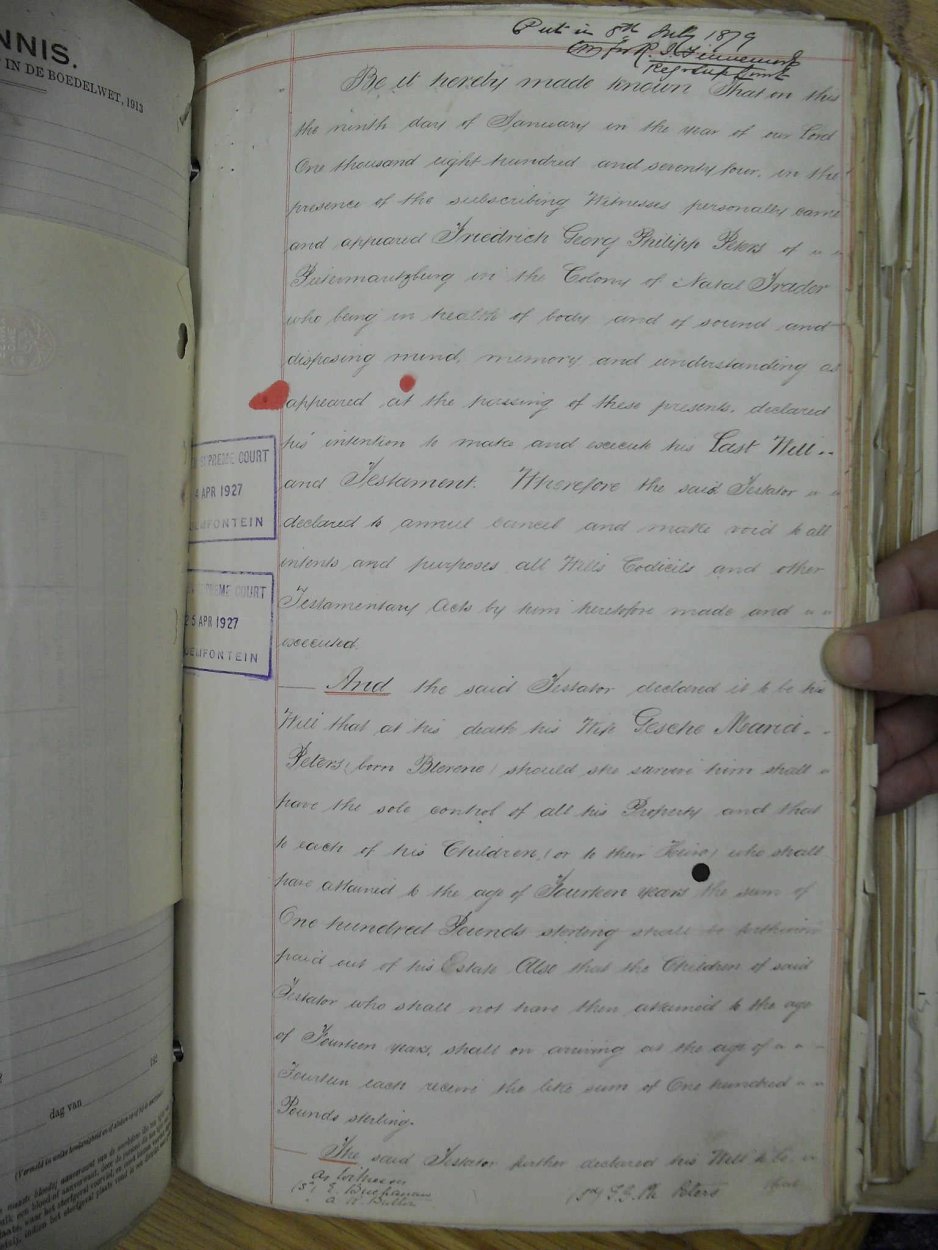 NNIS.
IN DE BOEDELWET, 1913
Put in 8th July 1879
Be it hereby made known That on this
the ninth day of January in the year of our Lord
One thousand eight hundred and seventy four, in the
presence of the subscribing Witnesses personally came
and appeared Friedrich Georg Philipp Peters of
Pietermaritzburg in the Colony of Natal Trader
who being in health of body and of sound and
disposing mind, memory and understanding as
appeared at the passing of these presents, declared
his intention to make and execute his Last Will
and Testament. Wherefore the said Testator
declared to annul cancel and make void to all
intents and purposes all Wills Codicils and other
Testamentary Acts by him heretofore made and
executed.
And the said Testator declared it to be his
Will that at his death his Wife Gesche Maria
Peters (born ) should she survive him shall
have the sole control of all his Property and that
to each of his Children (or to their ) who shall
have attained to the age of Fourteen years the sum of
One hundred Pounds sterling shall be
paid out of his Estate Also that the Children of said
Testator who shall not have then attained to the age
of Fourteen years, shall on arriving at the age of
Fourteen each receive the like sum of One hundred
Pounds sterling.
The said Testator further declared his Will to be
that
As Witnesses
E. Buchanan
Peters
SUPREME COURT
APR 1927
EMFONTEIN
SUPREME COURT
25 APR 1927
EMFONTEIN
dag van 192